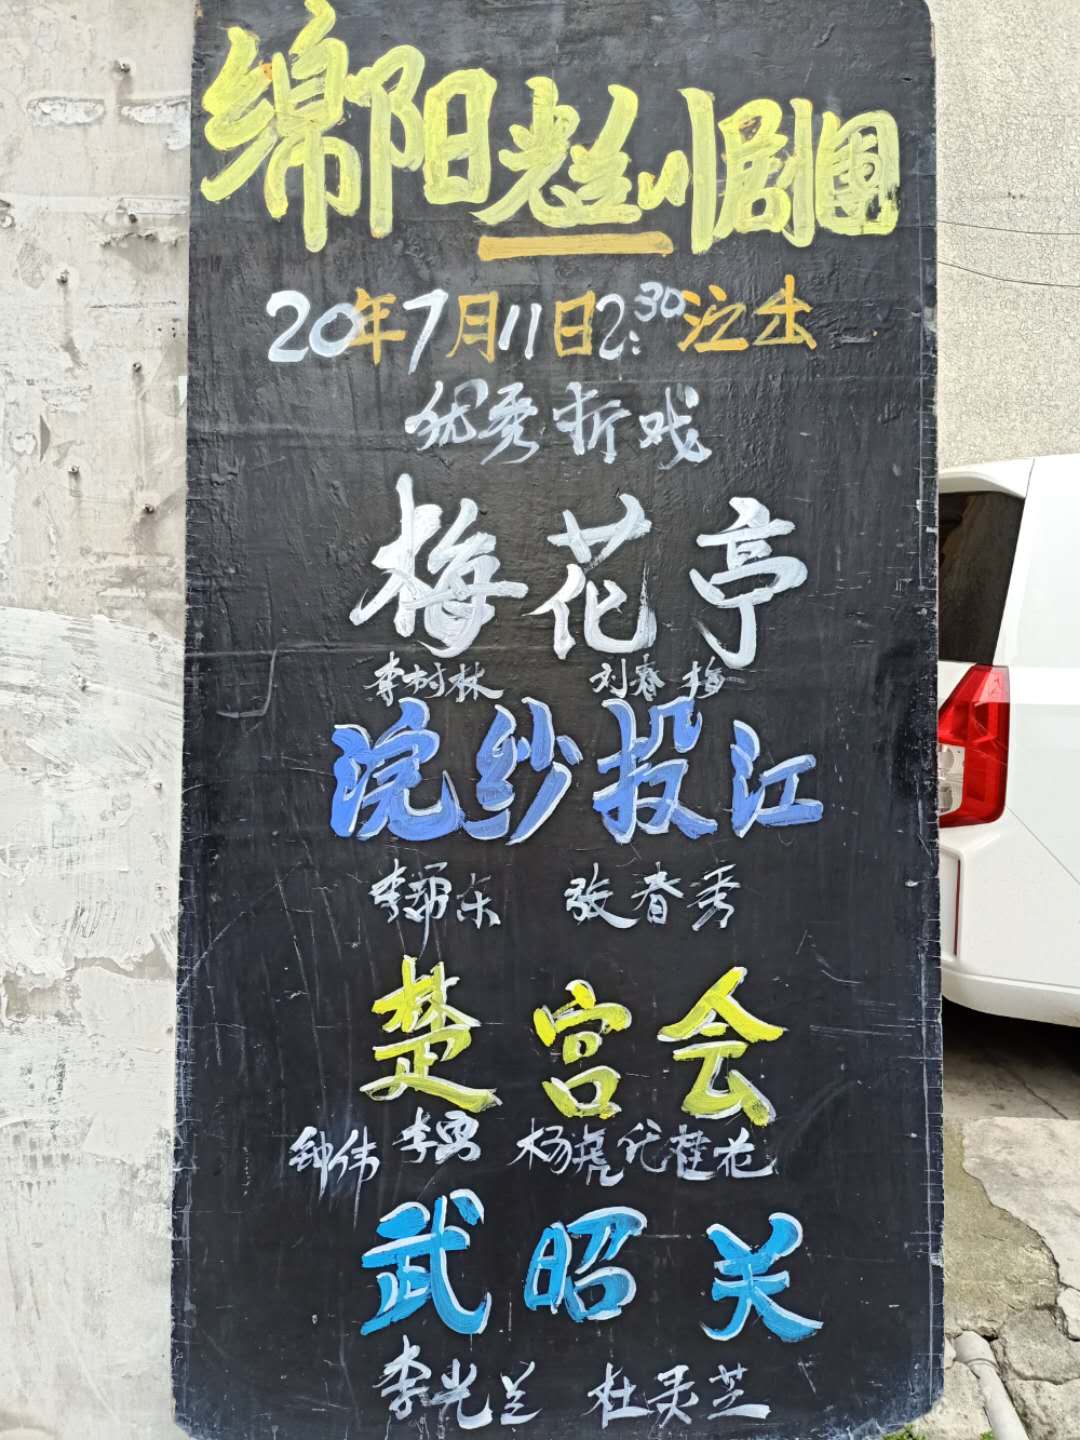 绵阳老兰川剧團
20年7月11日2:30演出
优秀折戏
梅花亭
李树林 刘春梅
浣纱投江
李 东 张春秀
楚宫会
钟伟 李勇 杨虎 桂花
武昭关
李光兰 杜灵芝